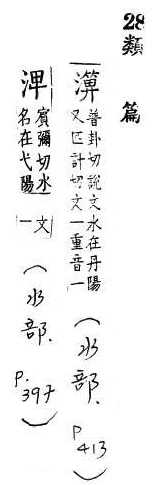 28類篇
淠普卦切說文水在丹陽
又匹計切文一重音一
(水部. P 413)
渒賓彌切水
名在弋陽
文一
(水部. P. 397)